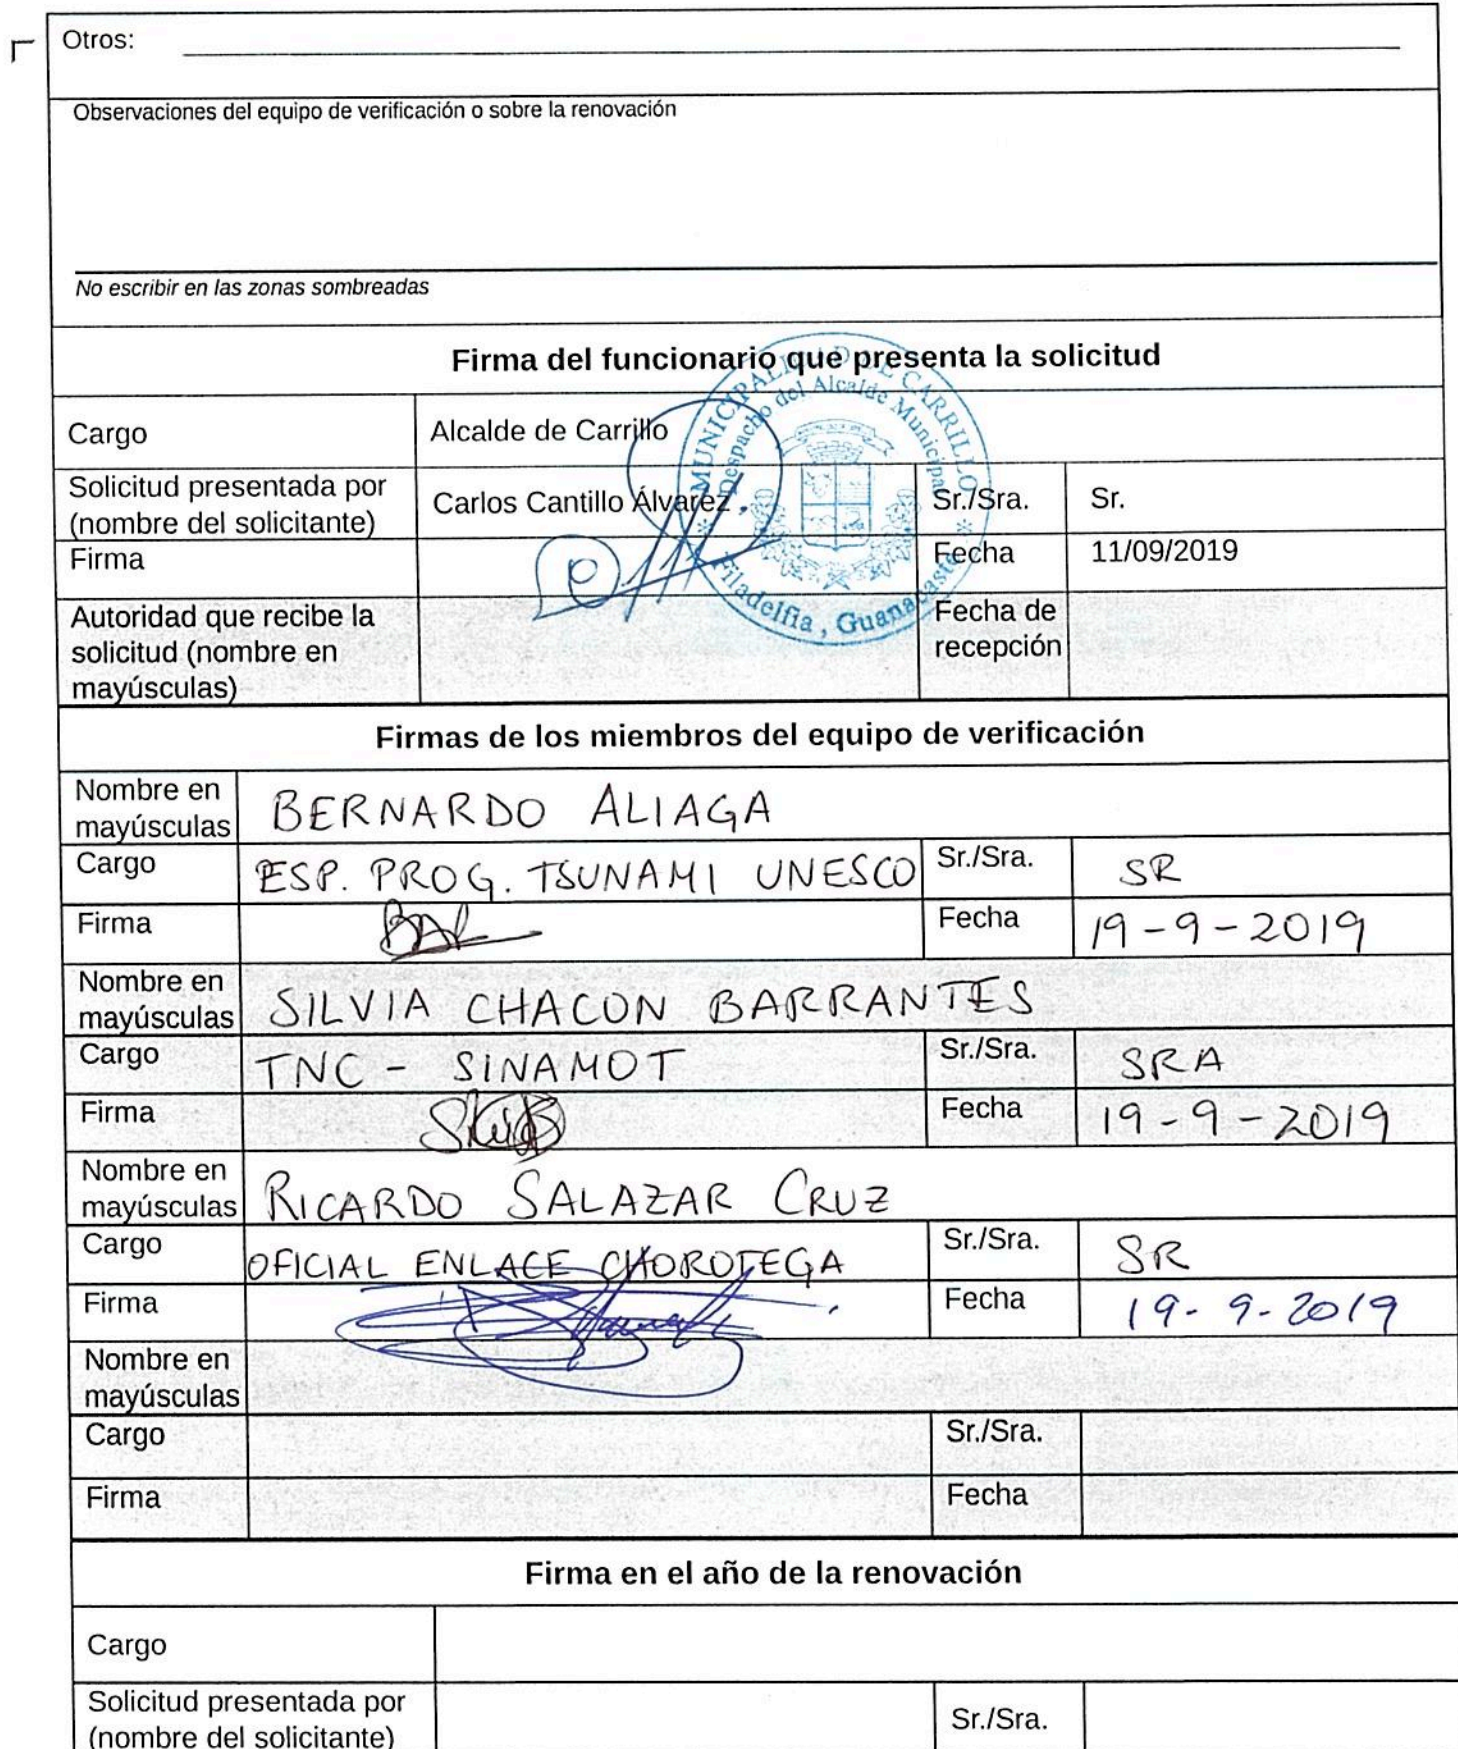 Otros:
Observaciones del equipo de verificación o sobre la renovación
No escribir en las zonas sombreadas
Firma del funcionario que presenta la solicitud
Cargo Alcalde de Carrillo
Solicitud presentada por
(nombre del solicitante) Carlos Cantillo Álvarez Sr./Sra. Sr.
Firma Fecha 11/09/2019
MUNICIPALIDAD DE CARRILLO
Despacho del Alcalde Municipal
Filadelfia, Guanacaste
Autoridad que recibe la
solicitud (nombre en
mayúsculas)
Fecha de
recepción
Firmas de los miembros del equipo de verificación
Nombre en
mayúsculas BERNARDO ALIAGA
Cargo ESP. PROG. TSUNAMI UNESCO Sr./Sra. SR
Firma Fecha 19-9-2019
Nombre en
mayúsculas SILVIA CHACON BARRANTES
Cargo TNC - SINAMOT Sr./Sra. SRA
Firma Fecha 19-9-2019
Nombre en
mayúsculas RICARDO SALAZAR CRUZ
Cargo OFICIAL ENLACE CHOROTEGA Sr./Sra. SR
Firma Fecha 19-9-2019
Nombre en
mayúsculas
Cargo Sr./Sra.
Firma Fecha
Firma en el año de la renovación
Cargo
Solicitud presentada por
(nombre del solicitante) Sr./Sra.